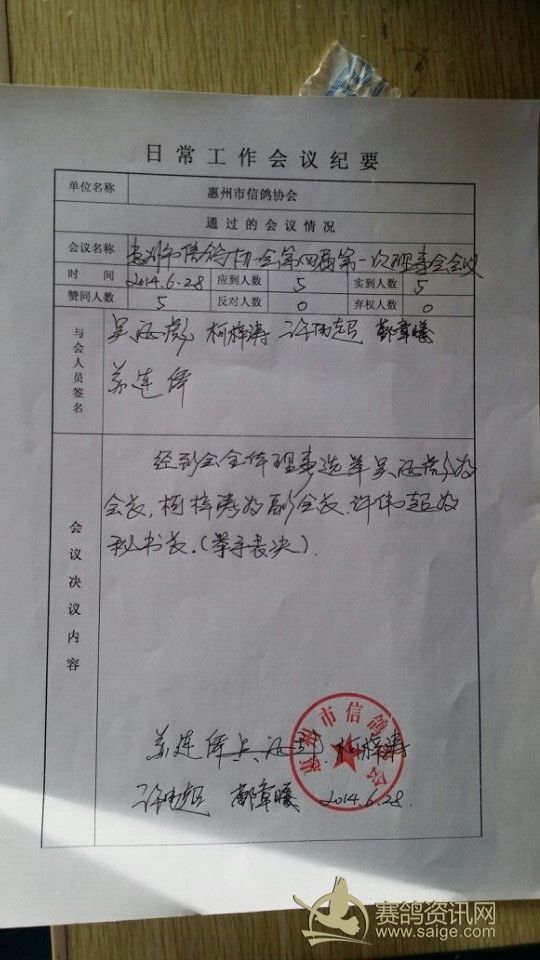 日常工作会议纪要
单位名称 惠州市信鸽协会
通过的会议情况
会议名称 惠州市信鸽协会第四届第一次理事会会议
时间 2014.6.28 应到人数 5 实到人数 5
赞同人数 5 反对人数 0 弃权人数 0
与会人员签名 柯梓涛 许伟超
苏连伟
会议决议内容
经到会全体理事选举吴 为
会长,柯梓涛为副会长,许伟超为
秘书长.(举手表决).
苏连伟 柯梓涛
许伟超 2014.6.28
惠州市信鸽协会
赛鸽资讯网
www.saige.com